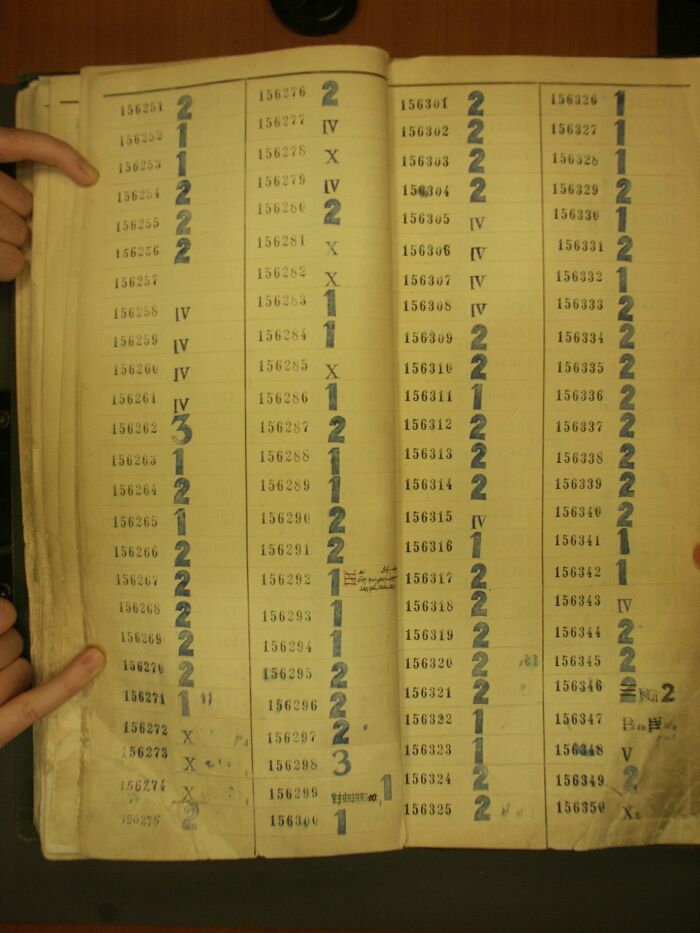 156251 2
156252 1
156253 1
156254 2
156255 2
156256 2
156257
156258 IV
156259 IV
156260 IV
156261 IV
156262 3
156263 1
156264 2
156265 1
156266 2
156267 2
156268 2
156269 2
156270 2
156271 1
156272 X
156273 X
156274 X
156275 2
156276 2
156277 IV
156278 X
156279 IV
156280 2
156281 X
156282 X
156283 1
156284 1
156285 X
156286 1
156287 2
156288 1
156289 1
156290 2
156291 2
156292 1 III
156293 1
156294 1
156295 2
156296 2
156297 2
156298 3
156299 1
156300 1
156301 2
156302 2
156303 2
156304 2
156305 IV
156306 IV
156307 IV
156308 IV
156309 2
156310 2
156311 1
156312 2
156313 2
156314 2
156315 IV
156316 1
156317 2
156318 2
156319 2
156320 2
156321 2
156322 1
156323 1
156324 2
156325 2
156326 1
156327 1
156328 1
156329 2
156330 1
156331 2
156332 1
156333 2
156334 2
156335 2
156336 2
156337 2
156338 2
156339 2
156340 2
156341 1
156342 1
156343 IV
156344 2
156345 2
156346 2
156347
156348 V
156349 2
156350 X